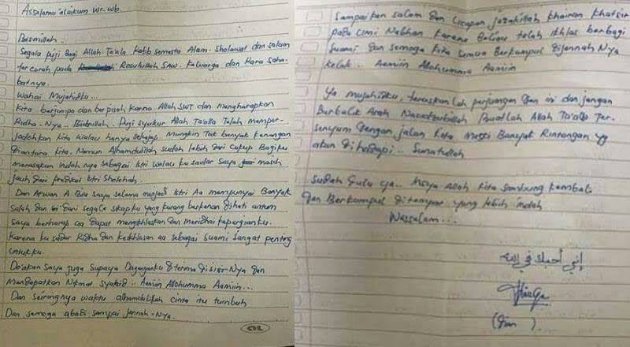 Assalamu'alaikum Wr. wb.
Bismillah
Segala puji Bagi Allah Ta'ala Rabb semesta Alam sholawat dan salam
tercurah pada Rosulullah SAW. keluarga dan Para saha-
batnya.
Wahai Mujahidku...
kita berjumpa dan berpisah karna Allah SWT dan mengharapkan
Ridho-Nya.. puji syukur Allah Ta'ala Telah memper-
jodohkan kita walau hanya sekejap. Mungkin Tak banyak kenangan
diantara kita, Namun Alhamdulillah sudah lebih dari cukup Bagiku
merasakan indah nya sebagai istri walau ku sadar saya masih
jauh dari predikat istri sholehah.
Dan selama menjadi istri Aa mempunyai Banyak
salah dan dari segala sikapku yang kurang berkenan dihati
saya berharap aa Dapat mengikhlaskan dan meridhai kepergianku.
Karena ku sadar Ridha dan keikhlasan aa sebagai suami sangat penting
untukku.
Do'akan saya juga supaya diterima disisi-Nya dan
Mendapatkan Nikmat syahid.. Aamiin Allohumma Aamiin...
Dan seiringnya waktu alhamdulillah cinta itu tumbuh
Dan semoga abadi sampai Jannah-Nya.
Sampaikan salam dan ucapan jazakillah khairan khatsir
pada Umi Nabhan karena Beliau telah ikhlas berbagi
suami dan semoga kita semua Berkumpul dijannah-Nya
kelak.. Aamiin Allohumma Aamiin
Ya mujahidku, teruskanlah perjuangan dan ini dan jangan
Berbalik Arah
dengan jalan kita Meski Banyak Rintangan yg
akan dihadapi.. Sunatullah
Sudah dulu ya.. Insya Allah kita sambung kembali
dan Berkumpul ditempat yang lebih indah
Wassalam...
إني أحبك في الله
(Dian)